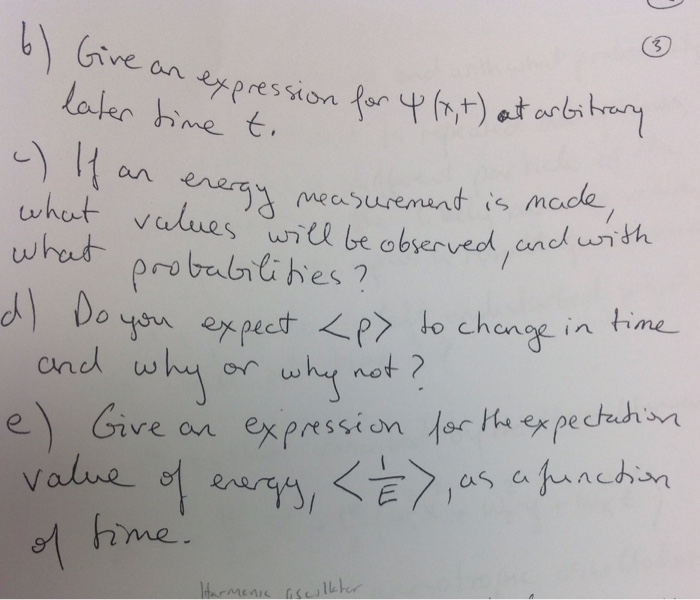 ③
b) Give an expression for ψ(x,t) at arbitrary
later time t.
c) If an energy measurement is made,
what values will be observed, and with
what probabilities?
d) Do you expect <p> to change in time
and why or why not?
e) Give an expression for the expectation
value of energy, <1/E>, as a function
of time.
Harmonic oscillator